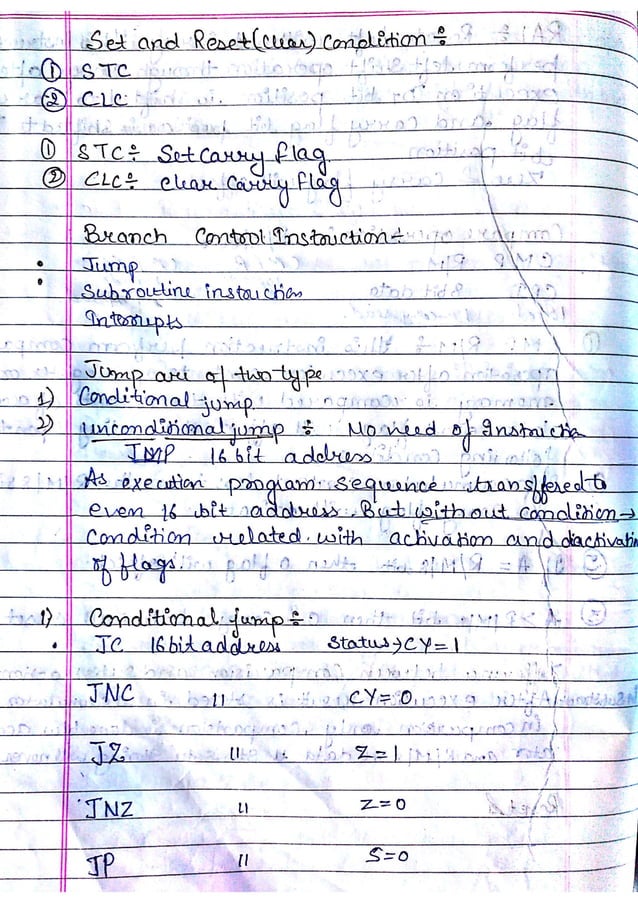 Set and Reset(Clear) Condition ÷
① STC
② CLC
① STC ÷ Set Carry flag
② CLC ÷ Clear Carry flag
Branch Contool Instouction ÷
Jump
Subroutine instouction
Interrupts
Jump are of two type
1) Conditional jump.
2) unconditional jump ÷ No need of Instructio
JMP 16 bit address
As execution program sequence itransffered to
even 16 bit address. But without condition →
Condition related with activation and diactivatin
of flags.
1) Conditional jump ÷
• JC 16 bit address Status → CY = 1
JNC 11 CY = 0
JZ 11 Z = 1
JNZ 11 Z = 0
JP 11 S = 0